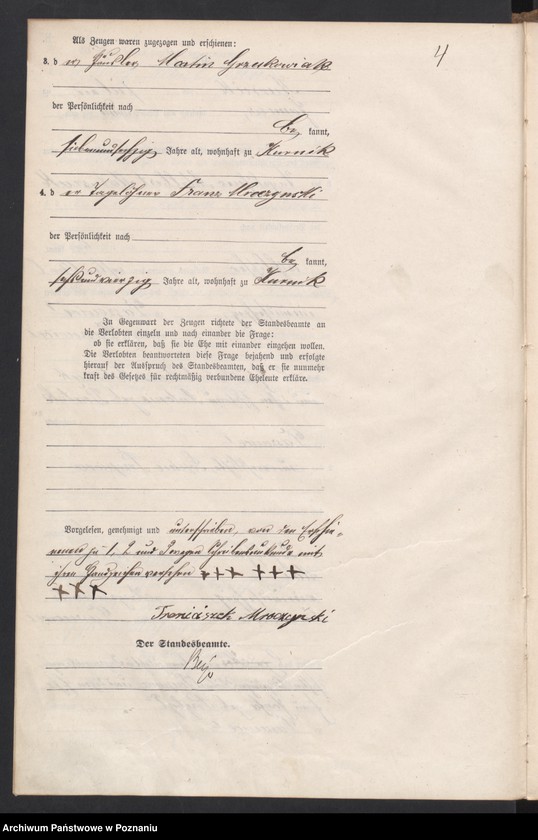 4
Als Zeugen waren zugezogen und erschienen:
3. der Häusler Martin Grzeskowiak
der Persönlichkeit nach
be kannt,
siebenundsechzig Jahre alt, wohnhaft zu Kurnik
4. der Tagelöhner Franz Mroczynski
der Persönlichkeit nach
be kannt,
sechsundvierzig Jahre alt, wohnhaft zu Kurnik
In Gegenwart der Zeugen richtete der Standesbeamte an
die Verlobten einzeln und nach einander die Frage:
ob sie erklären, daß sie die Ehe mit einander eingehen wollen.
Die Verlobten beantworteten diese Frage bejahend und erfolgte
hierauf der Ausspruch des Standesbeamten, daß er sie nunmehr
kraft des Gesetzes für rechtmäßig verbundene Eheleute erkläre.
Vorgelesen, genehmigt und unterschrieben, von den Erschie-
nenen zu 1, 2 und Zeugen Schreibensunkunde mit
ihren Handzeichen versehen +++ +++
+++
Franciszek Mroczyński
Der Standesbeamte.
Archiwum Państwowe w Poznaniu